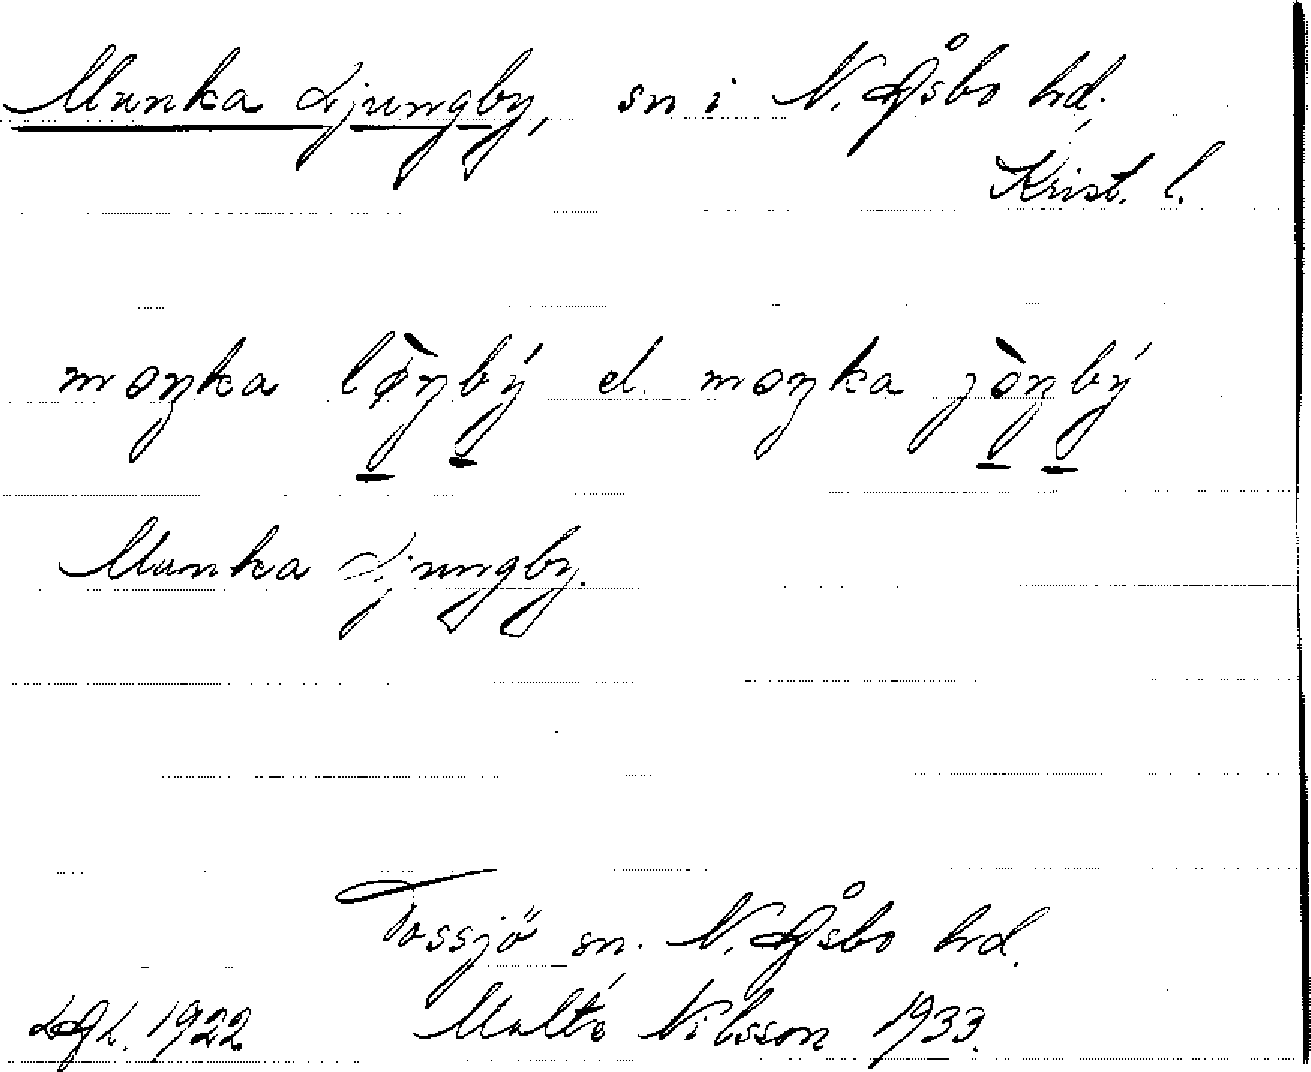 Munka Ljungby, sn i N. Åsbo hd.
Krist. l.
moŋka lø̀ŋbý el. moŋka jòŋbý
Munka Ljungby.
Tossjö sn. N. Åsbo hd.
1922 Malte Nilsson 1933.